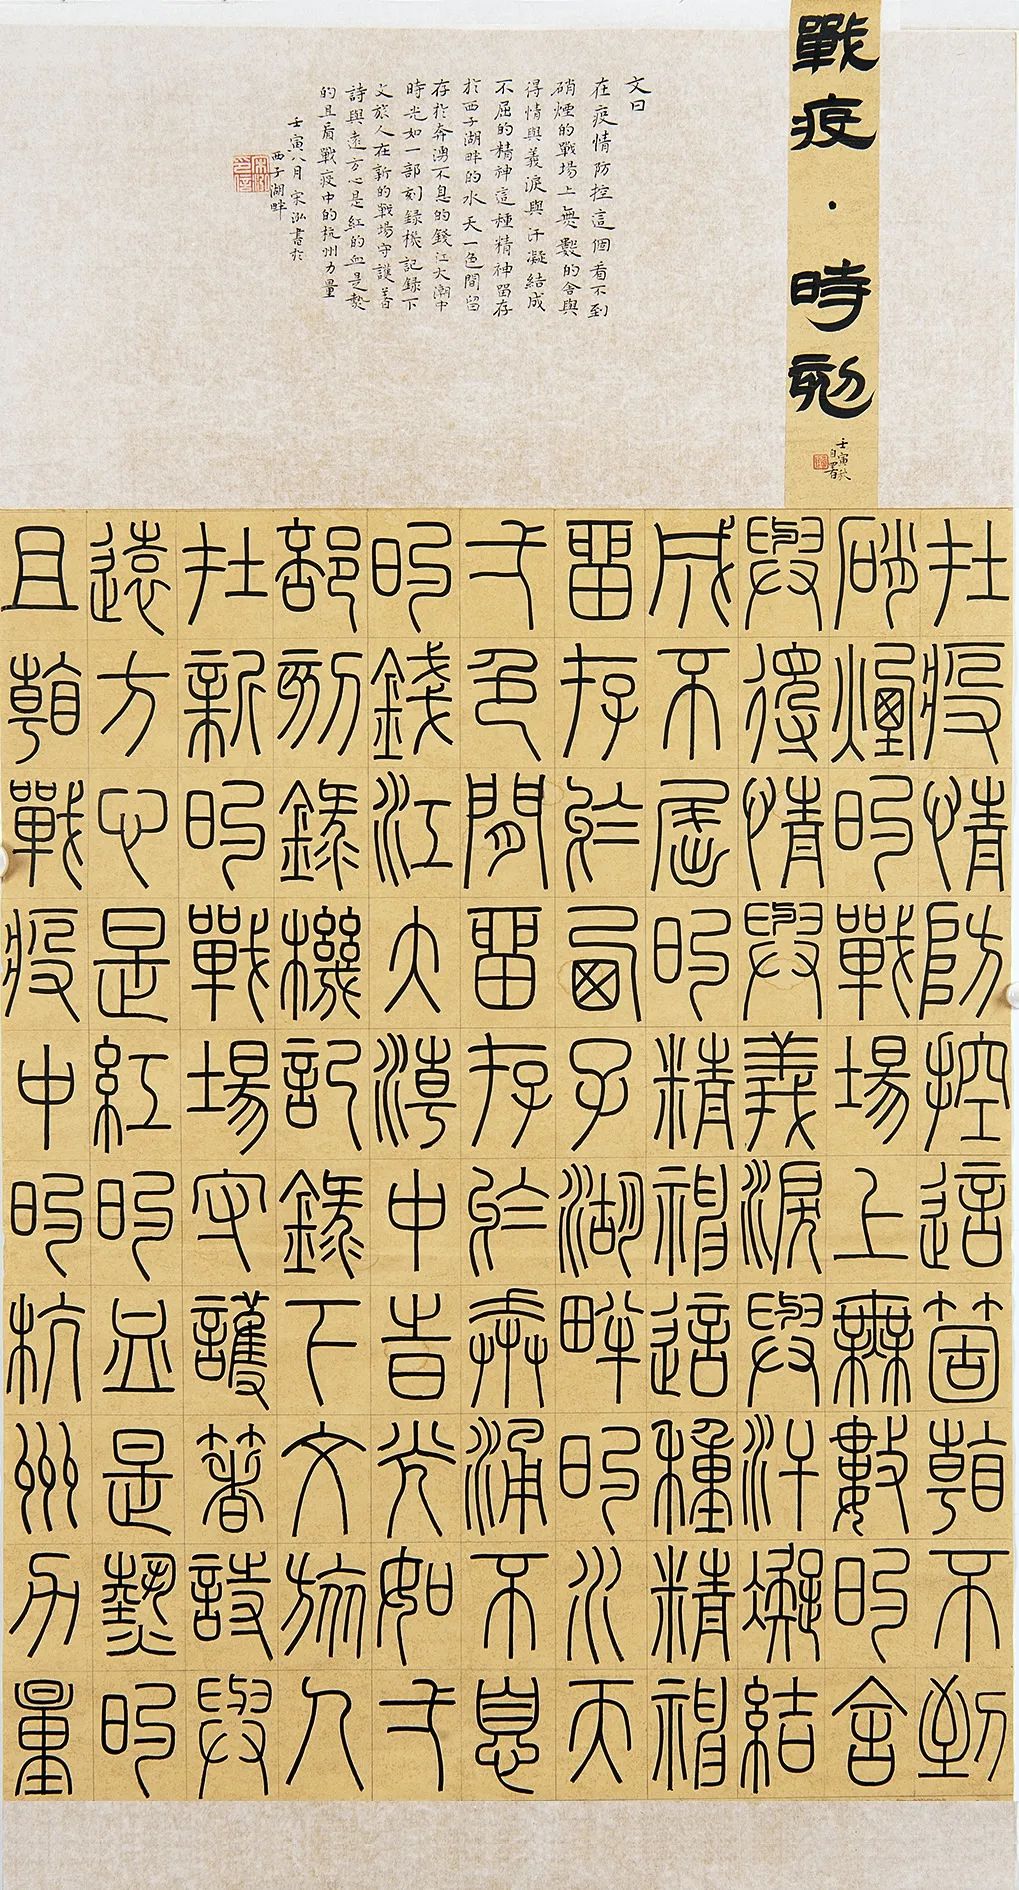 戰疫·時刻
壬寅秋
自署
文曰
在疫情防控這個看不到
硝煙的戰場上無數的舍與
得情與義淚與汗凝結成
不屈的精神這種精神留存
於西子湖畔的水天一色間留
存於奔湧不息的錢江大潮中
時光如一部刻錄機記錄下
文旅人在新的戰場守護著
詩與遠方心是紅的血是熱
的且看戰疫中的杭州力量
壬寅八月宋泓書於
西子湖畔
在疫情防控這個看不到
硝煙的戰場上無數的舍
與得情與義淚與汗凝結
成不屈的精神這種精神
留存於西子湖畔的水天
一色間留存於奔湧不息
的錢江大潮中時光如一
部刻錄機記錄下文旅人
在新的戰場守護著詩與
遠方心是紅的血是熱的
且看戰疫中的杭州力量